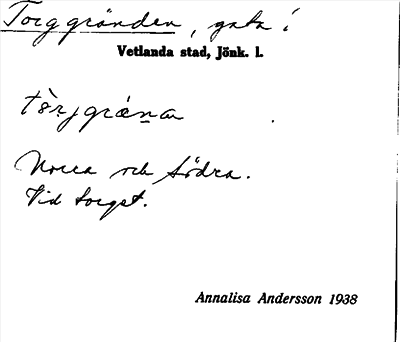 Torggränden, gata i
Vetlanda stad, Jönk. l.
Norra och Södra.
Vid torget.
Annalisa Andersson 1938